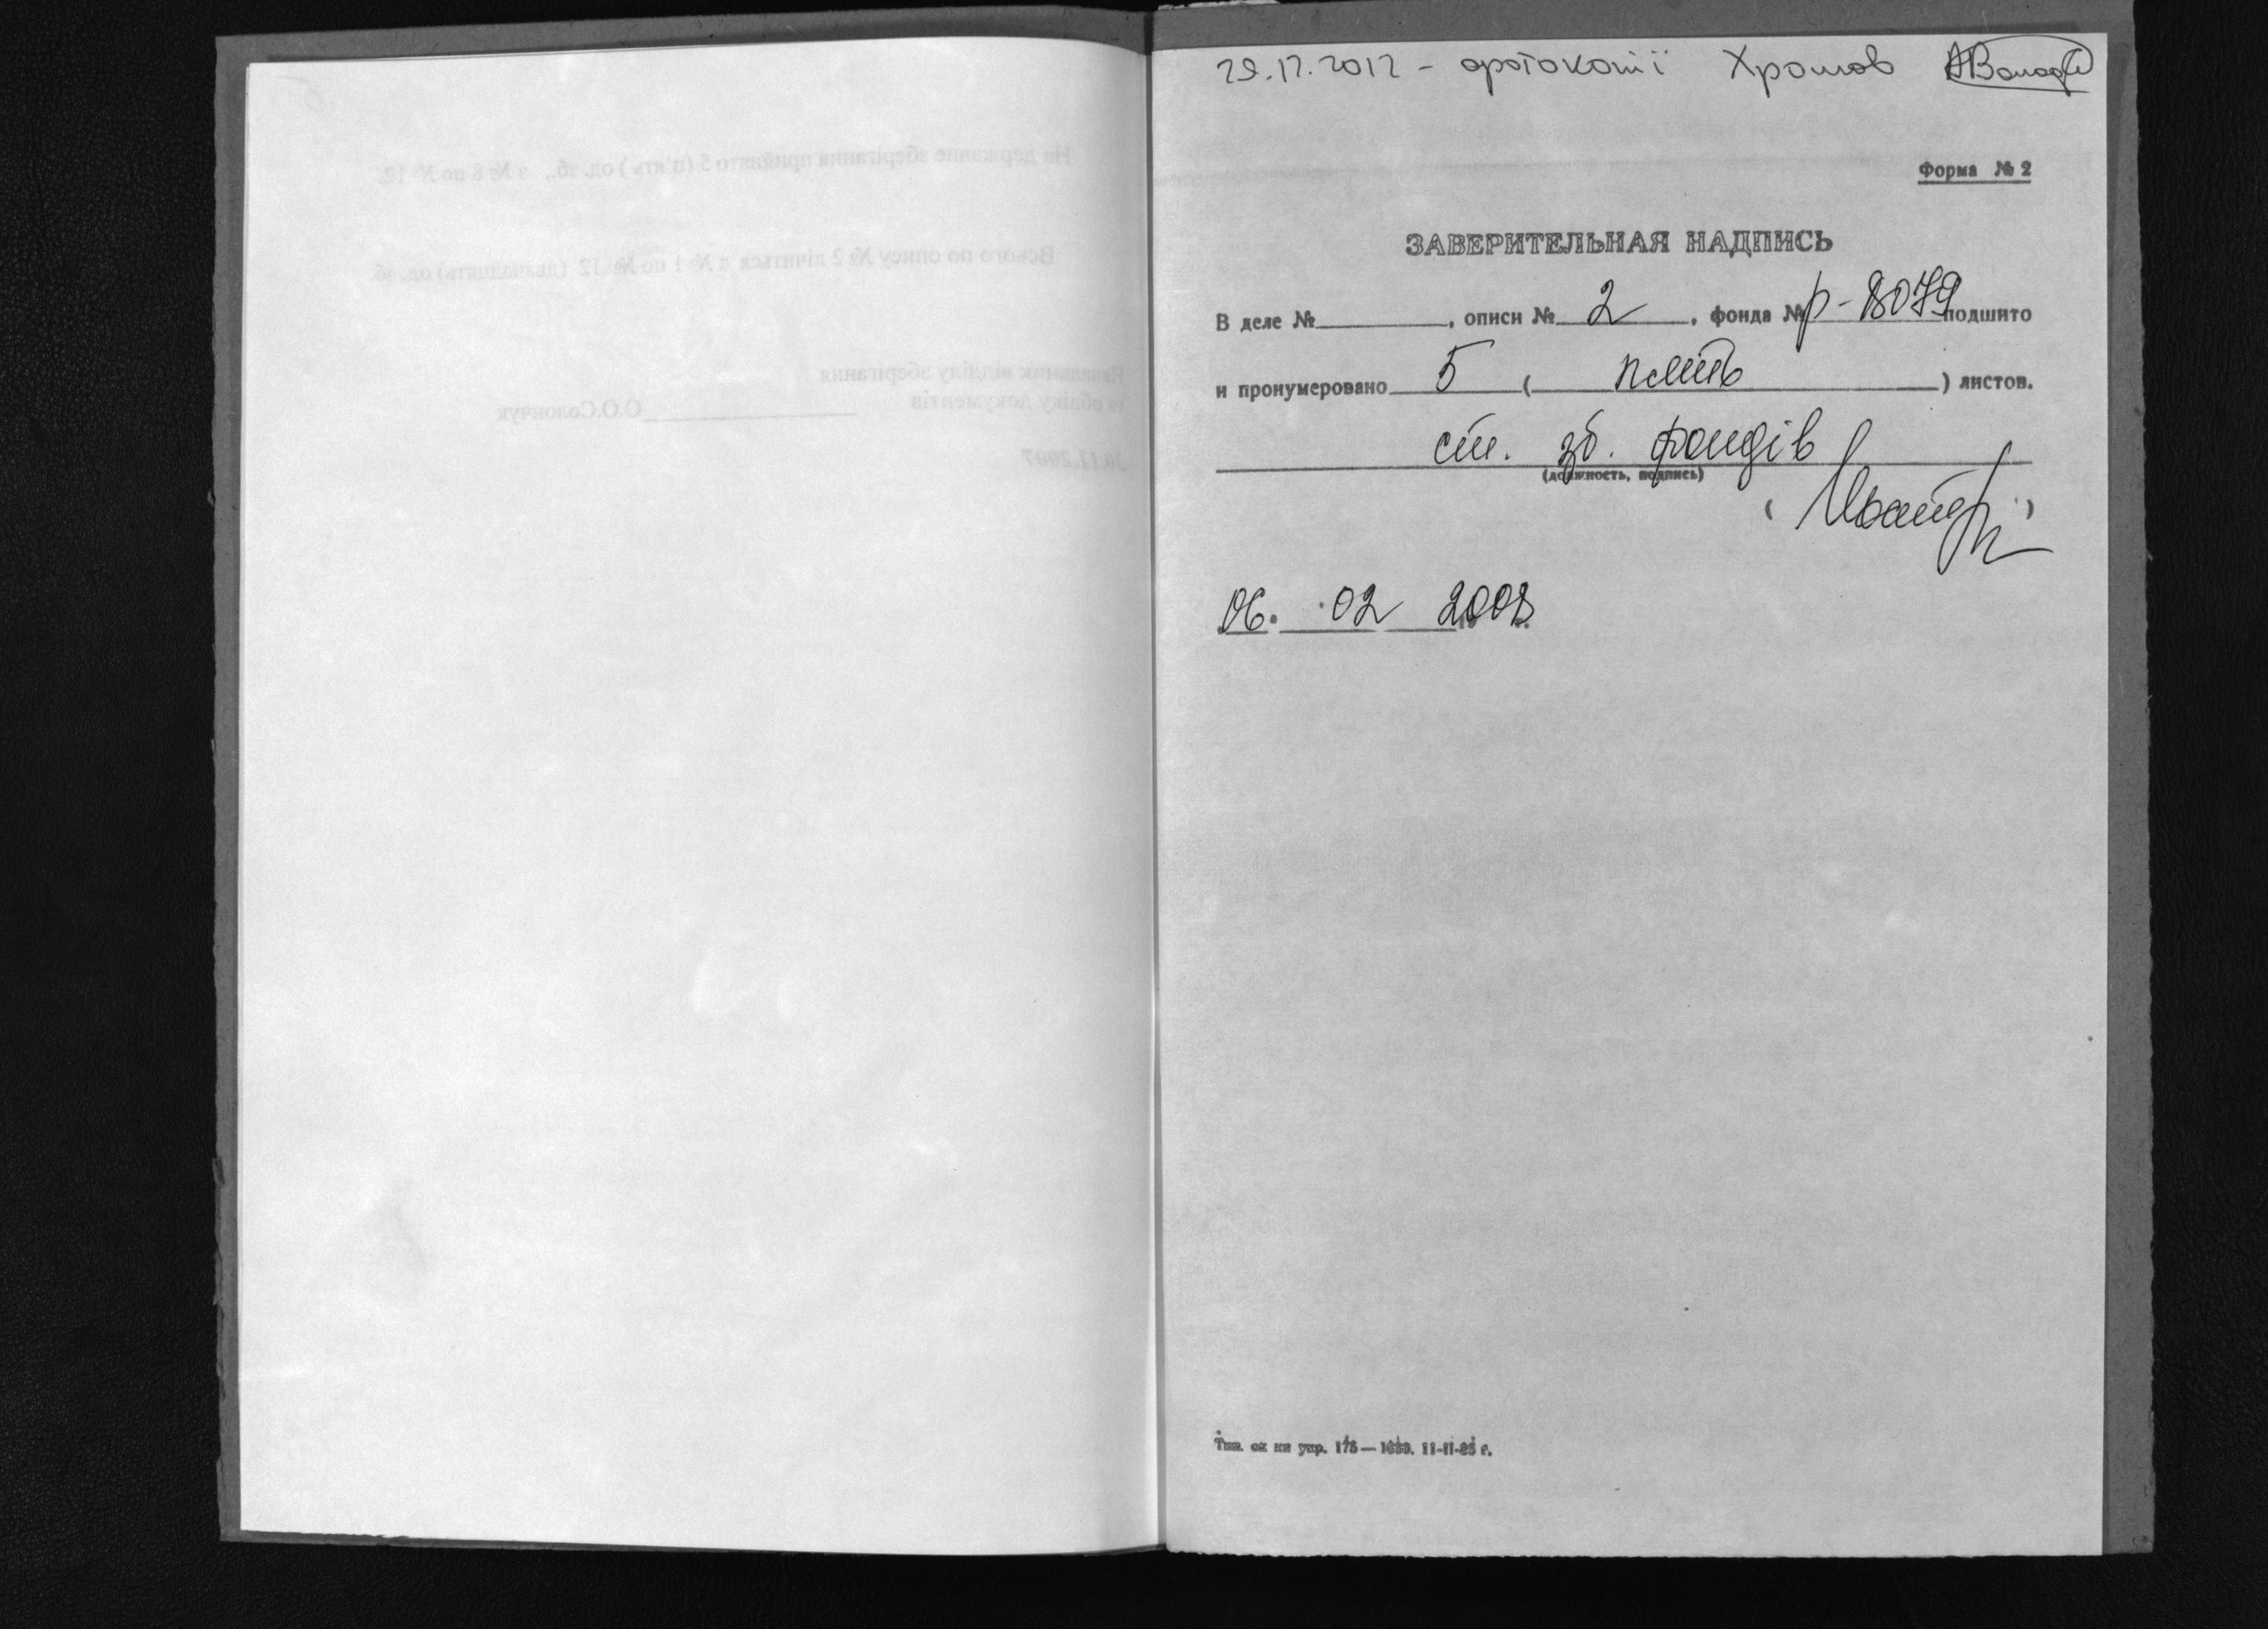 29.12.2012 - фотокопії Хромов
Форма № 2
ЗАВЕРИТЕЛЬНАЯ НАДПИСЬ
В деле № , описи № 2 , фонда № р-8079 подшито
и пронумеровано 5 ( пять ) листов.
ст. зб. фондів
(должность, подпись)
( )
06. 02 2008
На державне зберігання прийнято 5 (п'ять) од. зб., з № 8 по № 12.
Всього по опису № 2 лічиться з № 1 по № 12 (дванадцять) од. зб
Начальник відділу зберігання
та обліку документів О.О.Солончук
30.11.2007